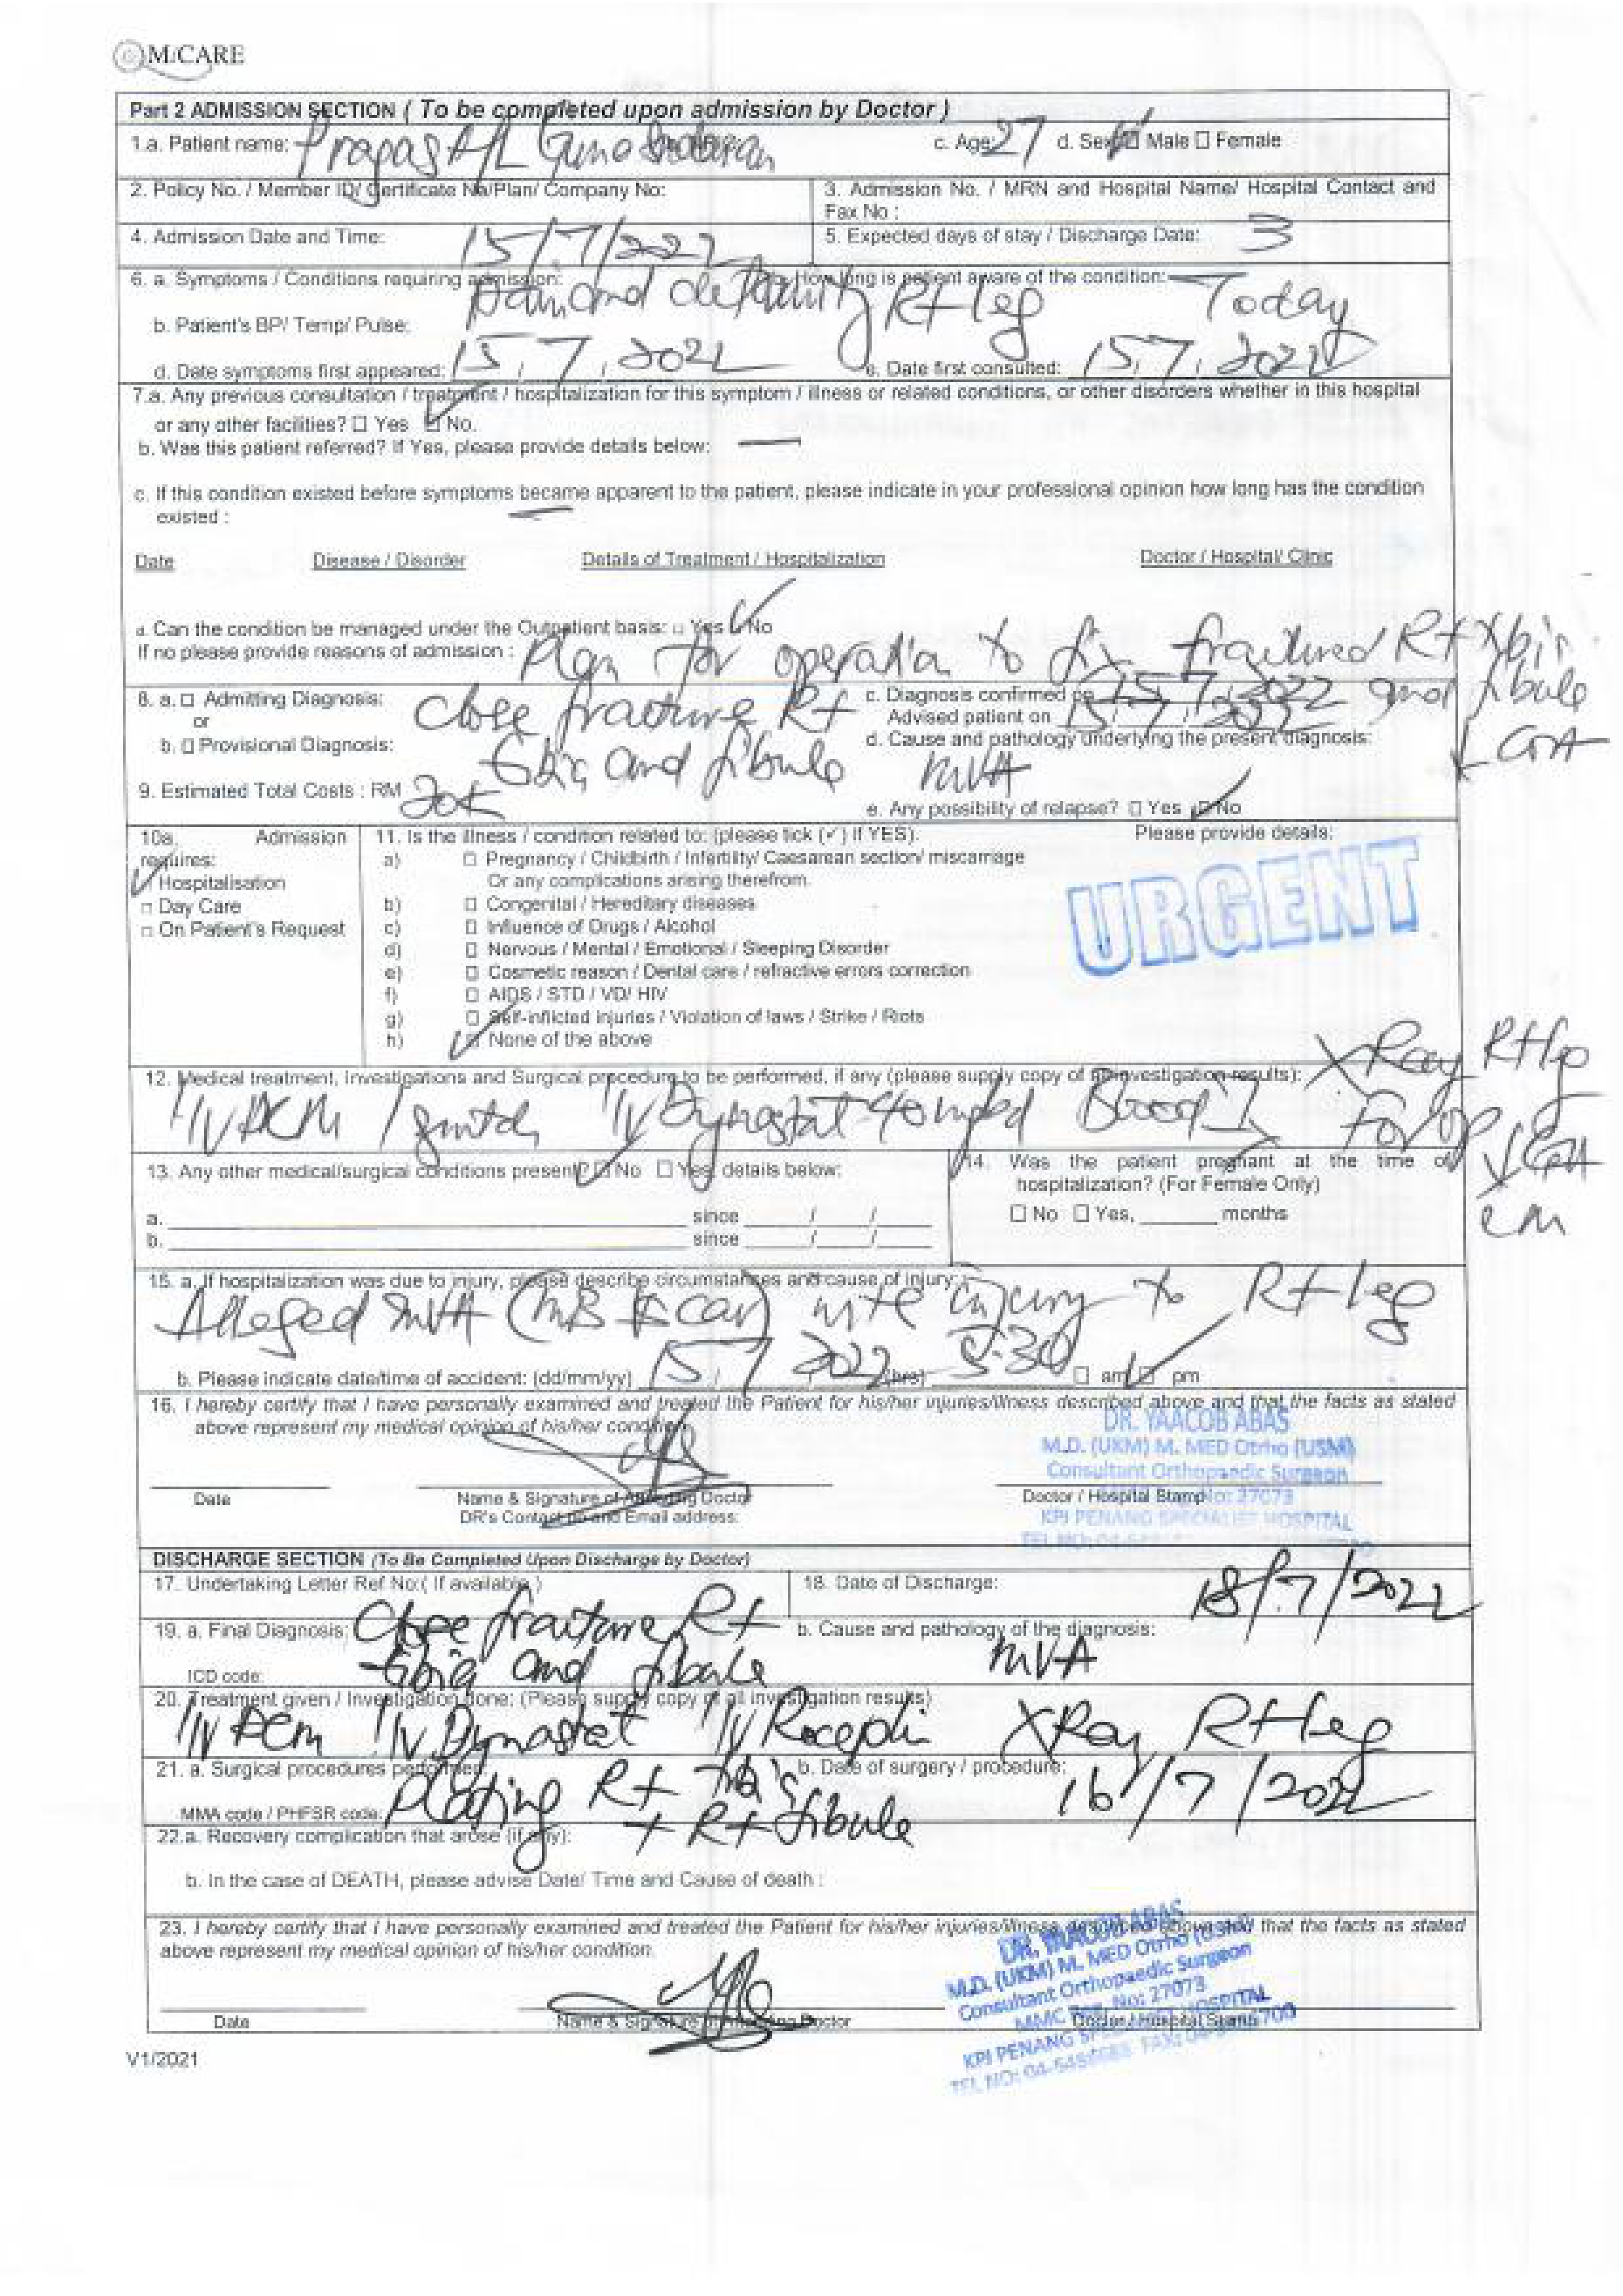 MiCARE
Part 2 ADMISSION SECTION ( To be completed upon admission by Doctor )
1.a. Patient name: Pragas A/L c. Age: 27 d. Sex ☑ Male ☐ Female
2. Policy No. / Member ID/ Certificate No/Plan/ Company No:
3. Admission No. / MRN and Hospital Name/ Hospital Contact and
Fax No :
4. Admission Date and Time: 15/7/2022
5. Expected days of stay / Discharge Date: 3
6. a. Symptoms / Conditions requiring admission: Pain and deformity Rt leg
How long is patient aware of the condition: Today
b. Patient's BP/ Temp/ Pulse:
d. Date symptoms first appeared: 15, 7, 2022
e. Date first consulted: 15, 7, 2022
7.a. Any previous consultation / treatment / hospitalization for this symptom / illness or related conditions, or other disorders whether in this hospital
or any other facilities? ☐ Yes ☑ No.
b. Was this patient referred? If Yes, please provide details below: —
c. If this condition existed before symptoms became apparent to the patient, please indicate in your professional opinion how long has the condition
existed : —
Date Disease / Disorder Details of Treatment / Hospitalization Doctor / Hospital/ Clinic
d. Can the condition be managed under the Outpatient basis: ☐ Yes ☑ No
If no please provide reasons of admission : Plan for operation to fix fractured Rt tibia and fibula
8. a. ☐ Admitting Diagnosis: Close fracture Rt
or
b. ☐ Provisional Diagnosis: tibia and fibula
c. Diagnosis confirmed on 15, 7, 2022
Advised patient on 15, 7, 2022
d. Cause and pathology underlying the present diagnosis:
MVA
9. Estimated Total Costs : RM 20k
e. Any possibility of relapse? ☐ Yes ☑ No
10a. Admission
requires:
☑ Hospitalisation
☐ Day Care
☐ On Patient's Request
11. Is the illness / condition related to: (please tick (✓) if YES). Please provide details:
a) ☐ Pregnancy / Childbirth / Infertility/ Caesarean section/ miscarriage
Or any complications arising therefrom.
b) ☐ Congenital / Hereditary diseases
c) ☐ Influence of Drugs / Alcohol
d) ☐ Nervous / Mental / Emotional / Sleeping Disorder
e) ☐ Cosmetic reason / Dental care / refractive errors correction
f) ☐ AIDS / STD / VD/ HIV
g) ☐ Self-inflicted injuries / Violation of laws / Strike / Riots
h) ☑ None of the above
URGENT
12. Medical treatment, investigations and Surgical procedure to be performed, if any (please supply copy of all investigation results): X Ray Rt leg
I/V Dynastat 40 mg Blood for op
13. Any other medical/surgical conditions present? ☑ No ☐ Yes, details below:
a. since / /
b. since / /
14. Was the patient pregnant at the time of
hospitalization? (For Female Only)
☐ No ☐ Yes, months
15. a. If hospitalization was due to injury, please describe circumstances and cause of injury:
Alleged MVA (MB car) injury to Rt leg
b. Please indicate date/time of accident: (dd/mm/yy) 15, 7, 2022 (hrs) 5.30 ☐ am ☑ pm
16. I hereby certify that I have personally examined and treated the Patient for his/her injuries/illness described above and that the facts as stated
above represent my medical opinion of his/her condition.
DR. YAACOB ABAS
M.D. (UKM) M. MED Otrho (USM)
Consultant Orthopaedic Surgeon
27073
KPJ PENANG SPECIALIST HOSPITAL
Date Name & Signature of Attending Doctor Doctor / Hospital Stamp
DR's Contact no and Email address:
DISCHARGE SECTION (To Be Completed Upon Discharge by Doctor)
17. Undertaking Letter Ref No:( If available )
18. Date of Discharge: 18/7/2022
19. a. Final Diagnosis: Close fracture Rt
tibia and fibula
ICD code:
b. Cause and pathology of the diagnosis:
MVA
20. Treatment given / Investigation done: (Please supply copy of all investigation results)
I/V Dynastat I/V X Ray Rt leg
21. a. Surgical procedures performed: Plating Rt tibia
+ Rt fibula
MMA code / PHFSR code:
b. Date of surgery / procedure: 16/7/2022
22.a. Recovery complication that arose (if any):
b. In the case of DEATH, please advise Date/ Time and Cause of death :
23. I hereby certify that I have personally examined and treated the Patient for his/her injuries/illness described above and that the facts as stated
above represent my medical opinion of his/her condition.
DR. YAACOB ABAS
M.D. (UKM) M. MED Otrho (USM)
Consultant Orthopaedic Surgeon
MMC Reg. No: 27073
KPJ PENANG SPECIALIST HOSPITAL
Date Name & Signature of Attending Doctor Doctor / Hospital Stamp
V1/2021